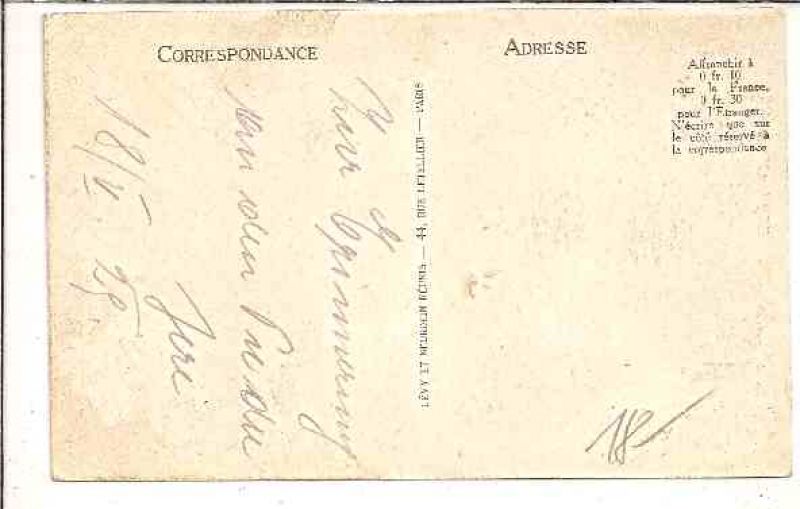 CORRESPONDANCE
ADRESSE
Affranchir à
0 fr. 10
pour la France,
0 fr. 30
pour l'Étranger.
N'écrire que sur
le côté réservé à
la correspondance
LÉVY ET NEURDEIN RÉUNIS — 44, RUE LETELLIER — PARIS
Zur Erinnerung
von der
18/V 25
18